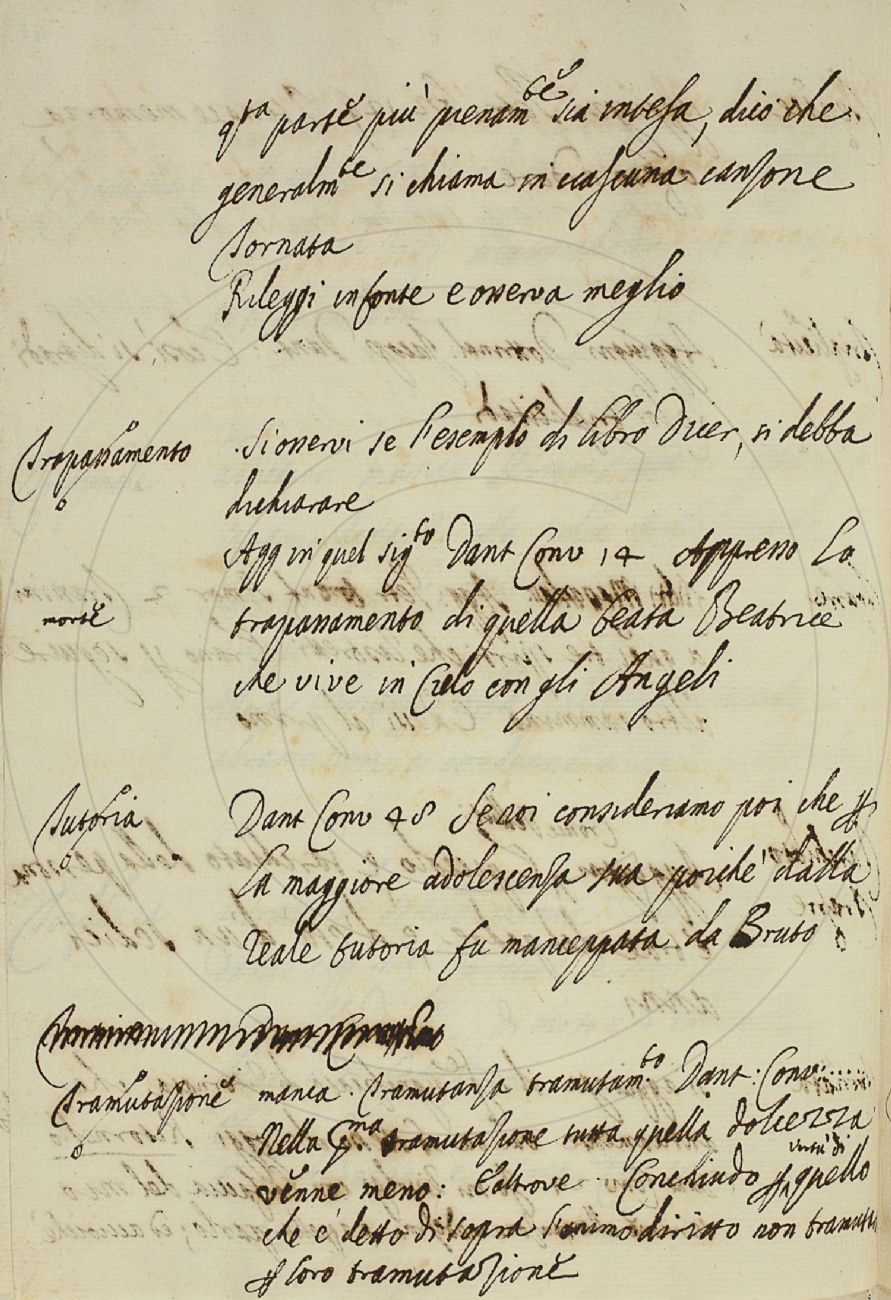 q.ta parte più pienam.te sia intesa, dico che
generalm.te si chiama in ciascuna canzone
Tornata
Rileggi in fonte e osserva meglio
Trapassamento Si osservi se l'esemplo di libro Dicer, si debba
dichiarare
Agg in quel sig.to Dant Conv 14 Appresso Lo
morte trapassamento di quella beata Beatrice
che vive in Cielo con gli Angeli
Tutoria Dant Conv 48 Se noi consideriamo poi che p
La maggiore adolescenza sua poichè dalla
Reale tutoria fu manceppata da Bruto
Tramutazione manca Tramutanza tramutam.to Dant. Conv.....
Nella p.ma tramutazione tutta quella dolcezza
venne meno: E altrove Conchiudo p virtù di quello
che è detto di sopra l'animo diritto non
p loro tramutazione